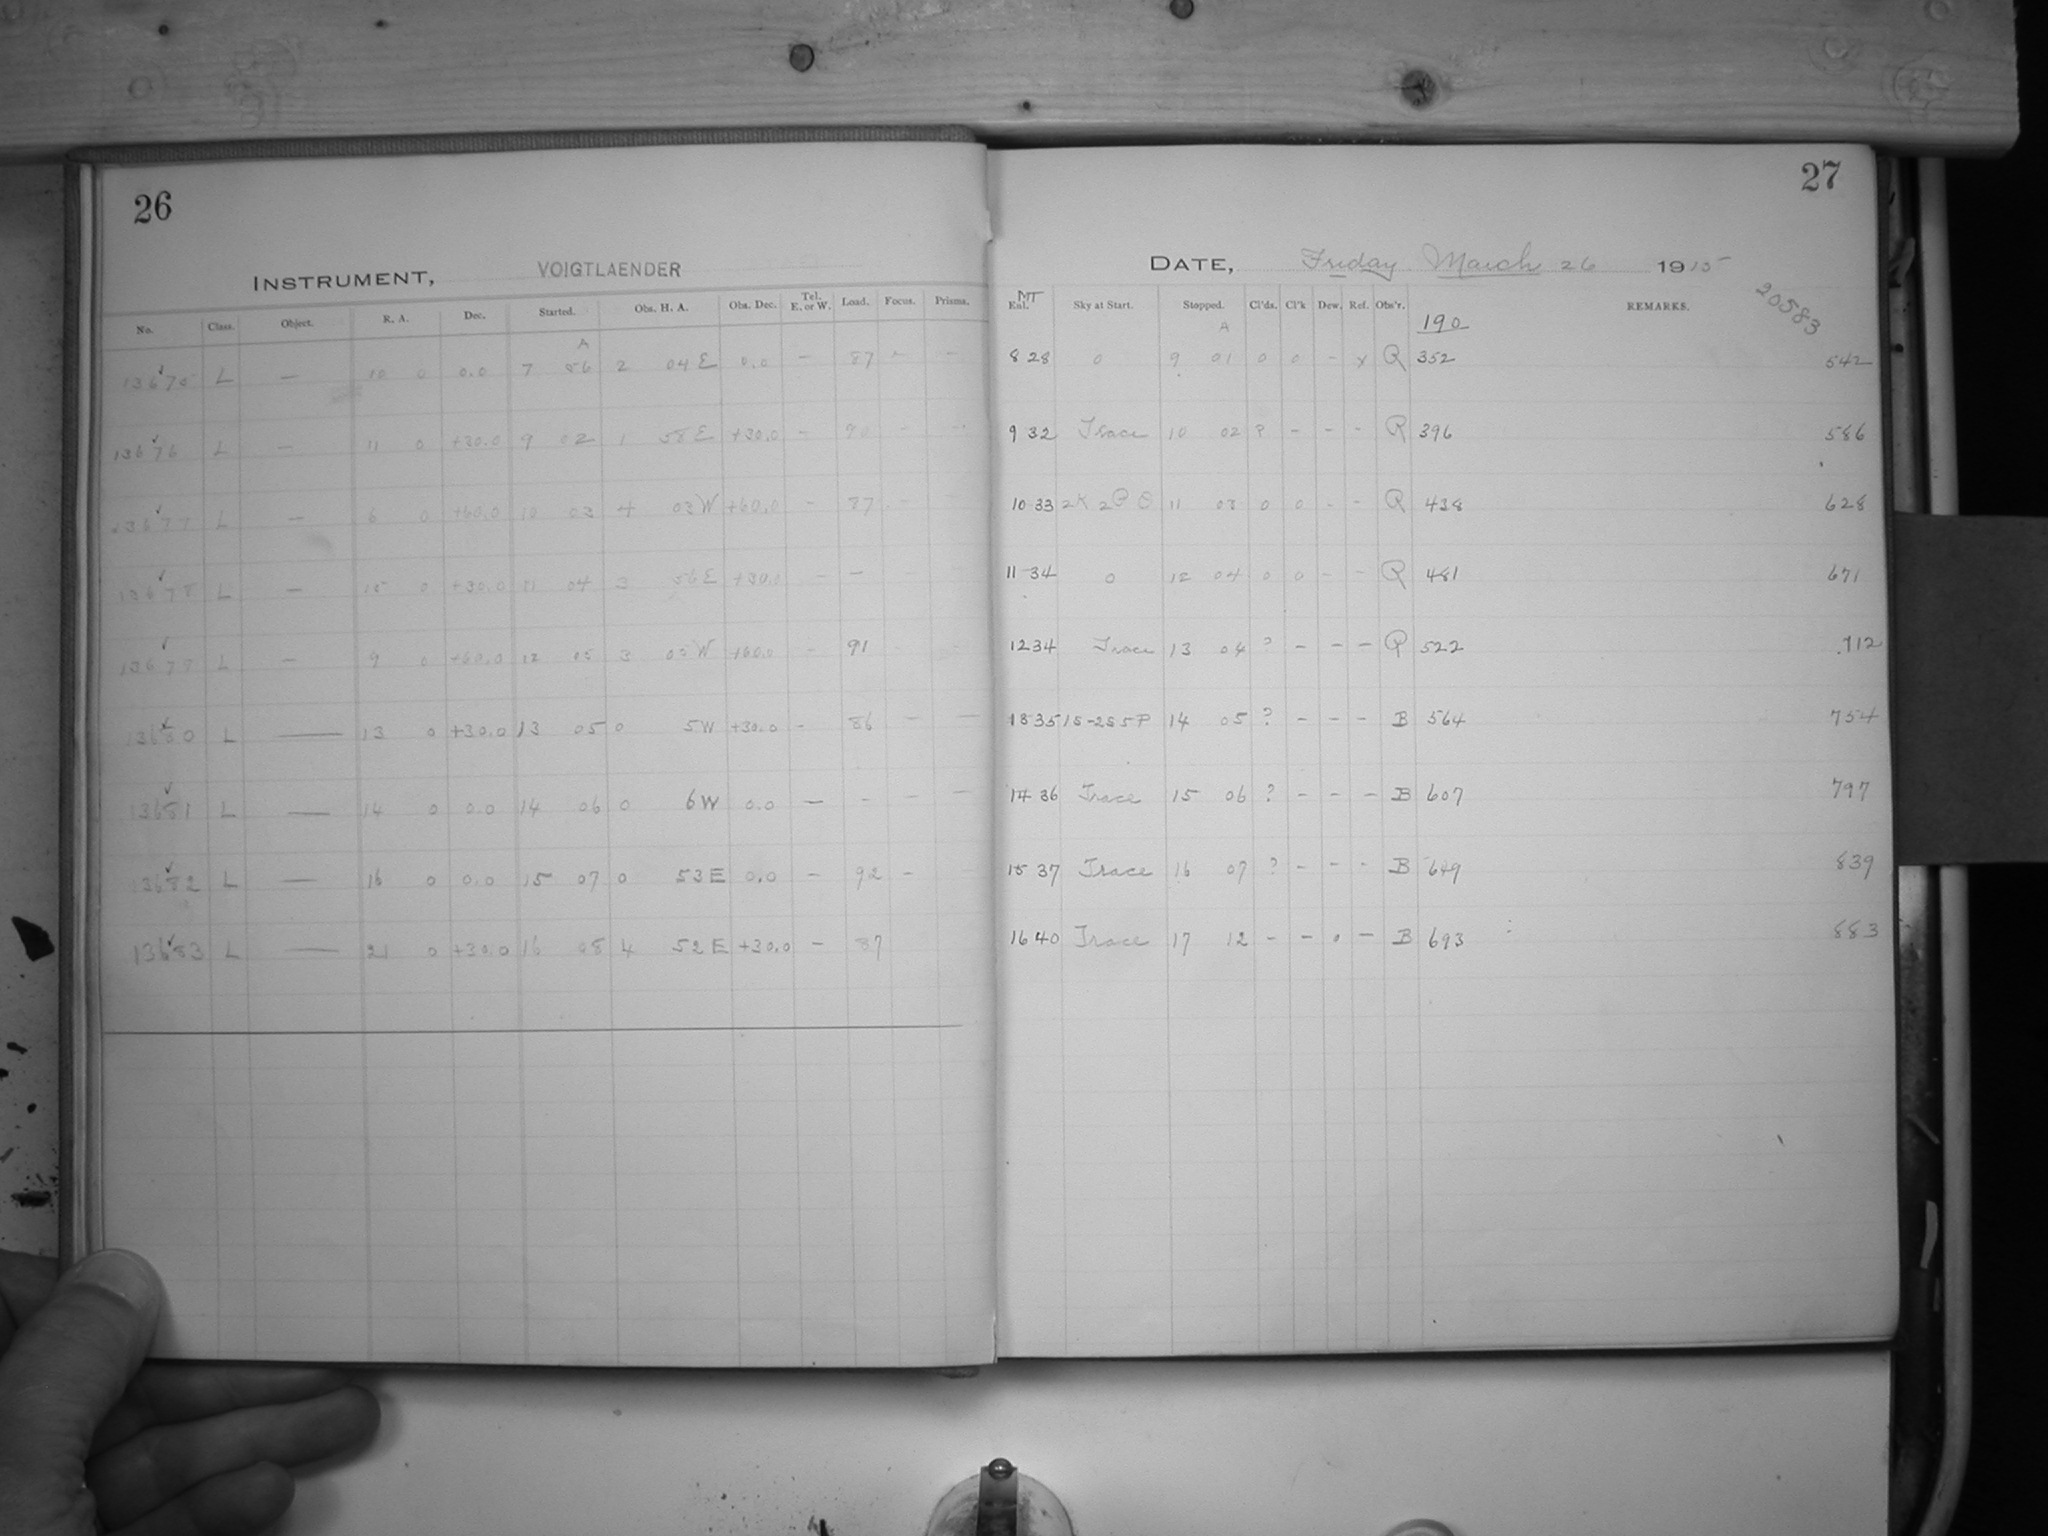 26
INSTRUMENT, VOIGTLAENDER
No. Class. Object. R. A. Dec. Started. Obs. H. A. Obs. Dec. Tel. E. or W. Load. Focus. Prisms.
A
13675 L — 10 0 0.0 7 56 2 04 E 0.0 – 87 – –
13676 L — 11 0 +30.0 9 02 1 58 E +30.0 – 90 – –
13677 L — 6 0 +60.0 10 03 4 03 W +60.0 – 87 – –
13678 L — 15 0 +30.0 11 04 3 56 E +30.0 – –
13679 L — 9 0 +60.0 12 05 3 05 W +60.0 – 91
13680 L — 13 0 +30.0 13 05 0 5 W +30.0 – 86 – –
13681 L — 14 0 0.0 14 06 0 6 W 0.0 – – – –
13682 L — 16 0 0.0 15 07 0 53 E 0.0 – 92 –
13683 L — 21 0 +30.0 16 08 4 52 E +30.0 – 87
27
DATE, Friday March 26 1915
20583
MT
Enl. Sky at Start. Stopped. Cl'ds. Cl'k Dew. Ref. Obs'r. REMARKS.
A
190
8 28 0 9 01 0 0 – x R 352 542
9 32 Trace 10 02 ? – – – R 396 586
10 33 2K 2P 0 11 03 0 0 – – R 438 628
11 34 0 12 04 0 0 – – R 481 671
12 34 Trace 13 04 ? – – – R 522 712
13 35 1S-2S 5P 14 05 ? – – – B 564 754
14 36 Trace 15 06 ? – – – B 607 797
15 37 Trace 16 07 ? – – – B 649 839
16 40 Trace 17 12 – – 0 – B 693 883